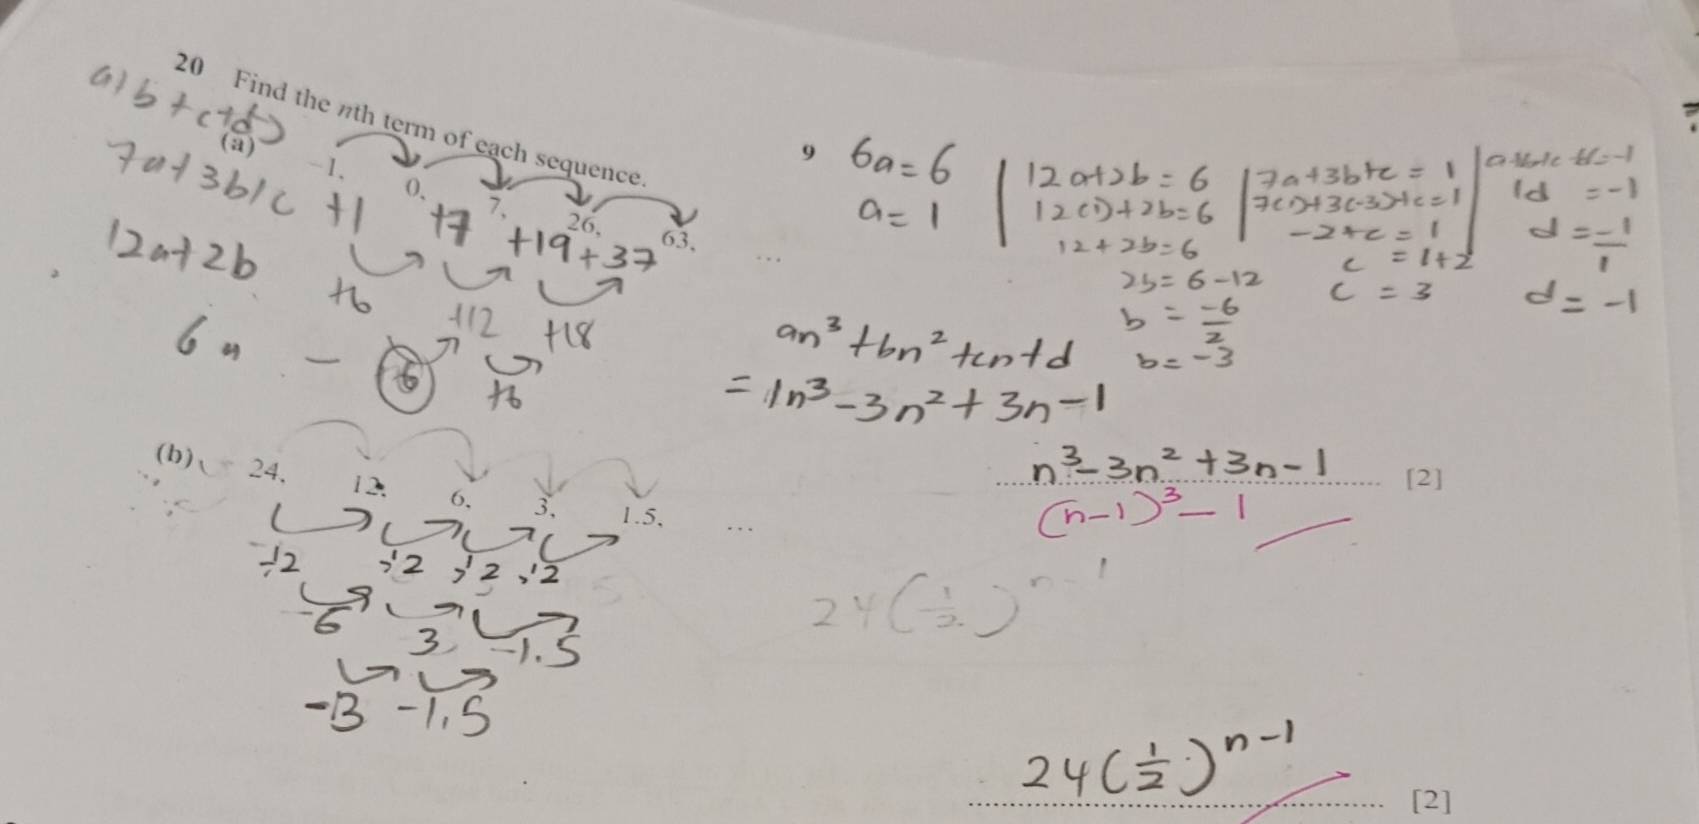 20 Find the nth term of each sequence.
a+b+c+d
(a) -1, 0, 7, 26, 63, ...
7a+3b+c +1 +7 +19 +37
12a+2b +6 +12 +18
6a - 6 +6
9 6a = 6
a = 1
12a+2b = 6
12(1)+2b=6
12 + 2b = 6
2b = 6 - 12
b = -6/2
b = -3
7a+3b+c = 1
7(1)+3(-3)+c=1
-2+c = 1
c = 1+2
c = 3
1d = -1
d = -1/1
d = -1
an³ + bn² + cn + d
= 1n³ - 3n² + 3n - 1
n³ - 3n² + 3n - 1 [2]
(n-1)³ - 1
(b) 24, 12, 6, 3, 1.5, ...
÷2 ÷2 ÷2 ÷2
-6 3 -1.5
-3 -1.5
24(1/2)ⁿ⁻¹
24(1/2)ⁿ⁻¹ [2]